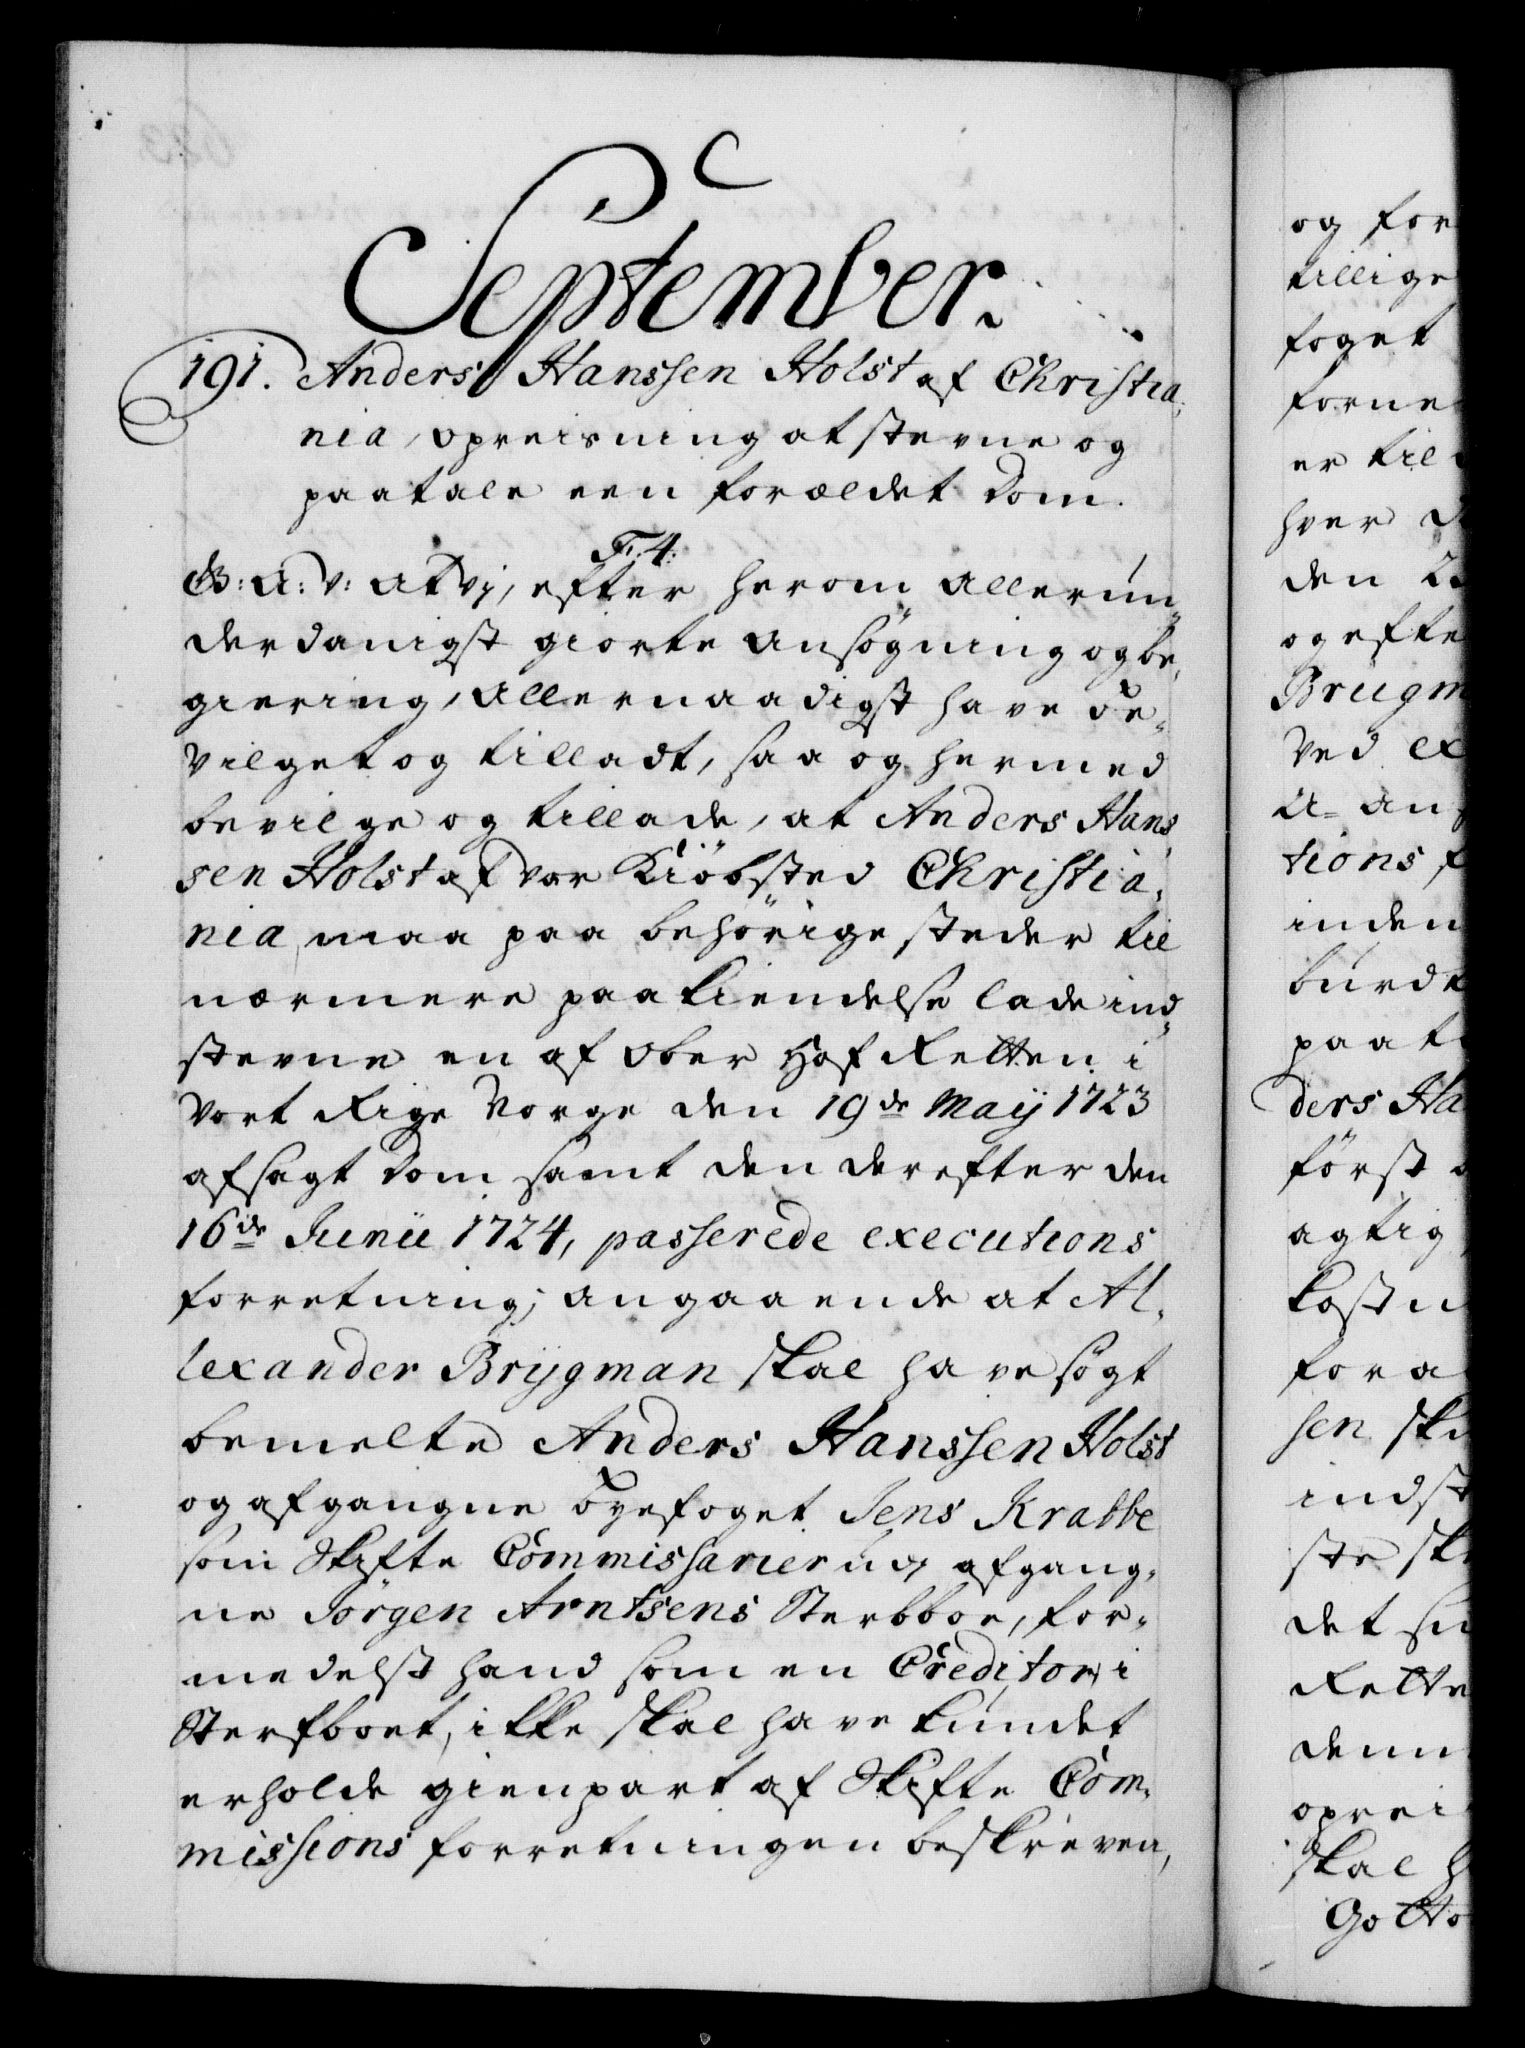 September.
191. Anders Hanssen Holst af Christia-
nia, opreisning at stevne og
paatale een forældet Dom.
F: 4:
G: A: V: At Vj, efter herom allerun-
derdanigst giorte ansøgning og be-
giering, allernaadigst have be-
vilget og tilladt, saa og hermed
bevilge og tillade, at Anders Hans-
sen Holst af vor Kiöbsted Christia-
nia, maa paa behörige steder til
nærmere paakiendelse lade ind-
stevne en af Ober Hof Retten i
vort Rige Norge den 19de Maij 1723
afsagt Dom samt den derefter den
16de Junii 1724, passerede executions
forretning; angaaende at Al-
lexander Brygman skal have søgt
bemelte Anders Hanssen Holst
og afgangne byefoget Jens Krabbe
som Skifte Commissarier udj afgang-
ne Jörgen Arntsens Sterbboe, for-
medelst hand som en Creditor i
Sterfboet, ikke skal have kundet
erholde gienpart af Skifte Com-
missions forretningen beskreven,
og for
tillige
foget
forne
er til
hver
den
og efte
Brügm
ved ex
tions f
inden
burde
paat
ders Ha
först
agtig
kostn
for a
sen sk
indst
ste sk
det
Rette
denn
oprei
skal h
Gotto